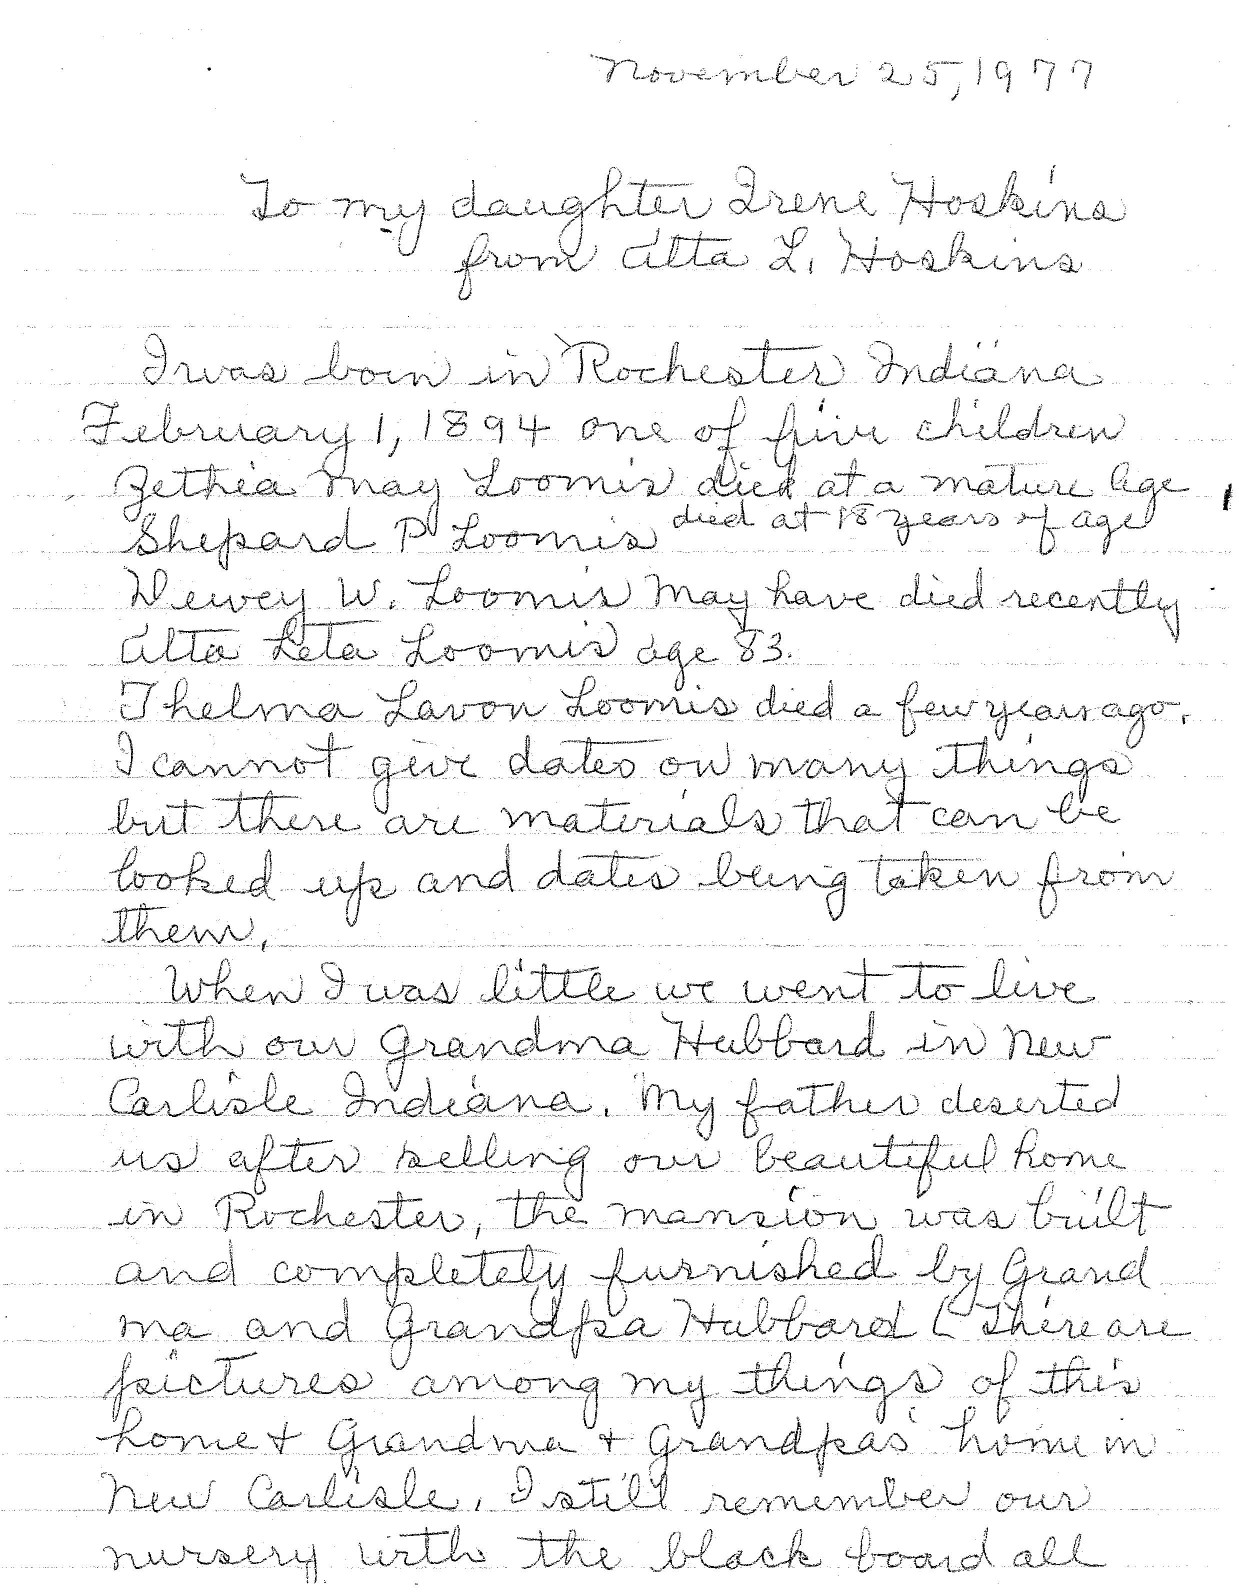 November 25, 1977
To my daughter Irene Hoskins
from Alta L. Hoskins
I was born in Rochester Indiana
February 1, 1894 one of five children
Zethia May Loomis died at a mature age
Shepard P Loomis died at 18 years of age
Dewey W. Loomis may have died recently
Alta Leta Loomis age 83.
Thelma Lavon Loomis died a few years ago.
I cannot give dates on many things
but there are materials that can be
looked up and dates being taken from
them.
When I was little we went to live
with our Grandma Hubbard in New
Carlisle Indiana. My father deserted
us after selling our beautiful home
in Rochester, the mansion was built
and completely furnished by Grand
ma and Grandpa Hubbard (There are
pictures among my things of this
home + Grandma + Grandpas' home in
New Carlisle. I still remember our
nursery with the black board all